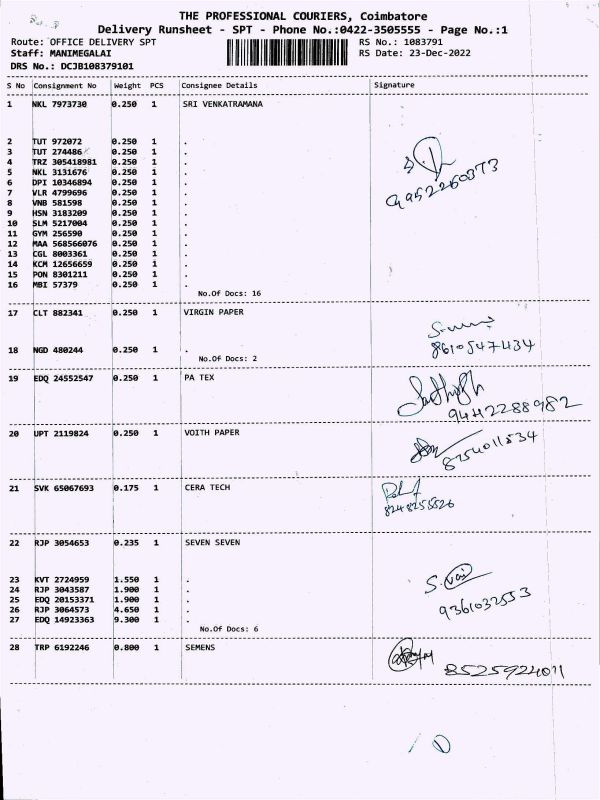 THE PROFESSIONAL COURIERS, Coimbatore
Delivery Runsheet - SPT - Phone No.:0422-3505555 - Page No.:1
Route: OFFICE DELIVERY SPT RS No.: 1083791
Staff: MANIMEGALAI RS Date: 23-Dec-2022
DRS No.: DCJB108379101
S No Consignment No Weight PCS Consignee Details Signature
1 NKL 7973730 0.250 1 SRI VENKATRAMANA
2 TUT 972072 0.250 1 .
3 TUT 274486 0.250 1 .
4 TRZ 305418981 0.250 1 .
5 NKL 3131676 0.250 1 .
6 DPI 10346894 0.250 1 .
7 VLR 4799696 0.250 1 .
8 VNB 581598 0.250 1 .
9 HSN 3183209 0.250 1 .
10 SLM 5217004 0.250 1 .
11 GYM 256590 0.250 1 .
12 MAA 568566076 0.250 1 .
13 CGL 8003361 0.250 1 .
14 KCM 12656659 0.250 1 .
15 PON 8301211 0.250 1 .
16 MBI 57379 0.250 1 .
No.Of Docs: 16
17 CLT 882341 0.250 1 VIRGIN PAPER
8610547434
18 NGD 480244 0.250 1 .
No.Of Docs: 2
19 EDQ 24552547 0.250 1 PA TEX
9442288982
20 UPT 2119824 0.250 1 VOITH PAPER
8754011534
21 SVK 65067693 0.175 1 CERA TECH
8248255526
22 RJP 3054653 0.235 1 SEVEN SEVEN
23 KVT 2724959 1.550 1 .
24 RJP 3043587 1.900 1 .
25 EDQ 20153371 1.900 1 .
26 RJP 3064573 4.650 1 .
9361032553
27 EDQ 14923363 9.300 1 .
No.Of Docs: 6
28 TRP 6192246 0.800 1 SEMENS
8525924011